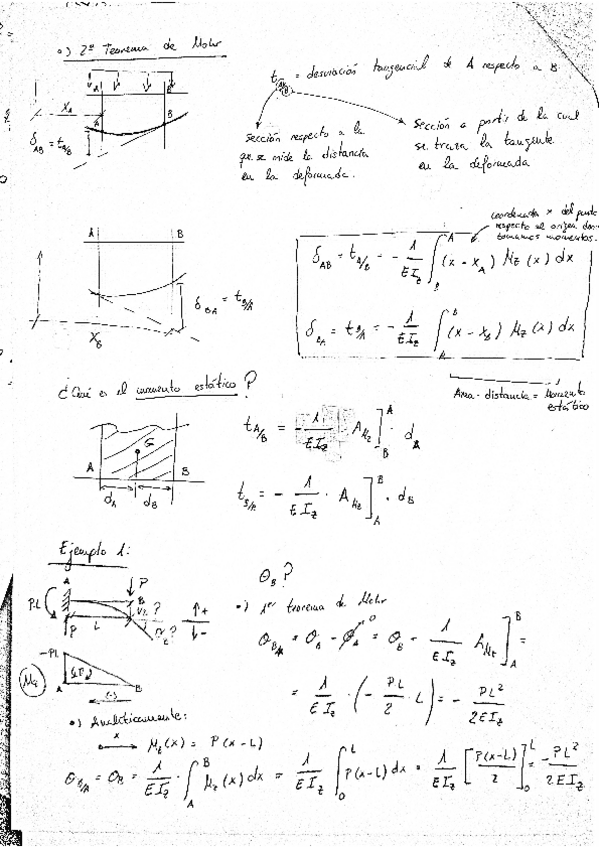 o) 2º Teorema de Mohr
t A/B = desviación tangencial de A respecto a B
A B
x_A
A B
δ_AB = t_A/B
Sección respecto a la
que se mide la distancia
en la deformada.
Sección a partir de la cual
se traza la tangente
en la deformada
A B
δ_BA = t_B/A
x_B
coordenada x del punto
respecto al origen donde
tomamos momentos.
δ_AB = t_A/B = - 1/(E I_z) ∫_B^A (x - x_A) M_z (x) dx
δ_BA = t_B/A = - 1/(E I_z) ∫_A^B (x - x_B) M_z (x) dx
Area · distancia = Momento
estático
¿Qué es el momento estático?
G
A B
d_A d_B
t_A/B = - 1/(E I_z) · A_Mz ]_B^A · d_A
t_B/A = - 1/(E I_z) · A_Mz ]_A^B · d_B
Ejemplo 1:
θ_B?
A P
P·L B
P L
↑+
↓-
-PL
M_z
A B
o) 1er teorema de Mohr
θ_B/A = θ_B - θ_A = θ_B = 1/(E I_z) A_Mz ]_A^B =
= 1/(E I_z) · (- PL/2 · L) = - PL²/(2 E I_z)
o) Analíticamente:
x M_z (x) = P(x-L)
θ_B/A = θ_B = 1/(E I_z) · ∫_A^B M_z (x) dx = 1/(E I_z) ∫_0^L P(x-L) dx = 1/(E I_z) [ P(x-L)/2 ]_0^L = -PL²/(2 E I_z)